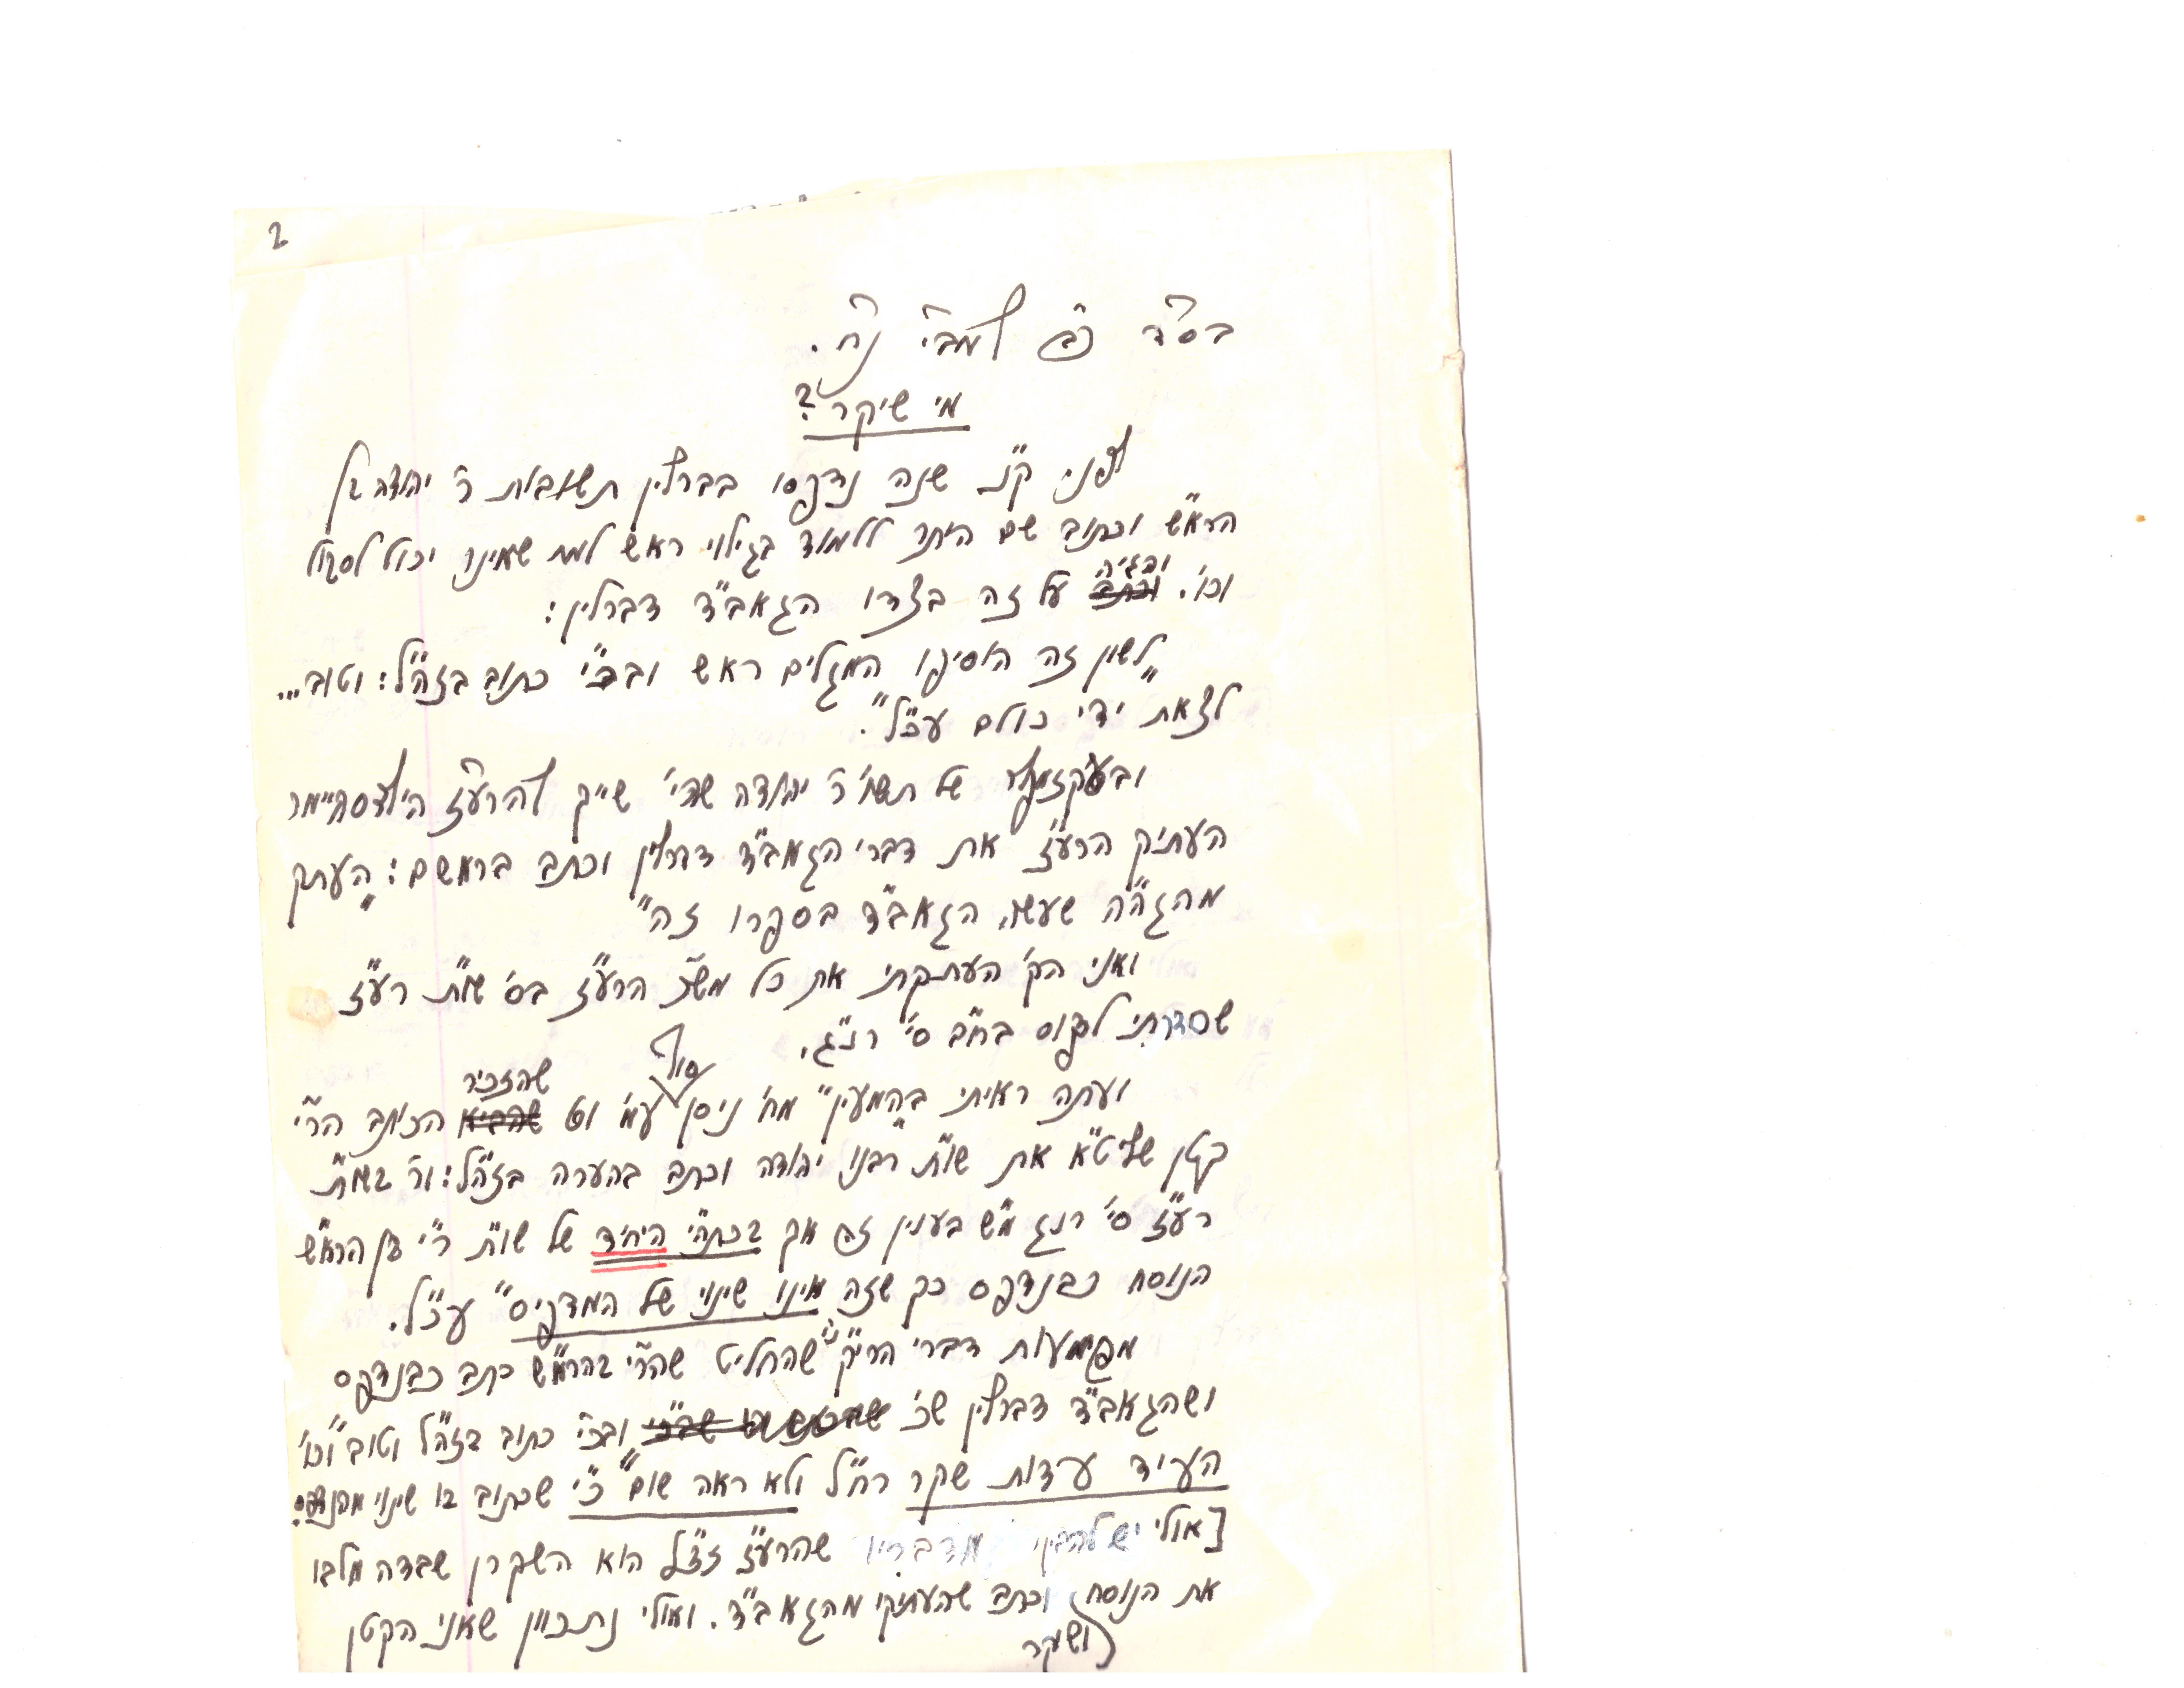 2
בס״ד כ״ב למב״י נ״ח.
מי שיקר?
לפני ק״נ שנה נדפסו בברלין תשובות ר׳ יהודה בן
הרא״ש וכתוב שם היתר ללמוד בגילוי ראש למי שאינו יכול לסבול
וכו׳. והגיה על זה בצדו הגאב״ד דברלין:
״לשון זה הוסיפו המגלים ראש ובכ״י כתוב בזה״ל: וטוב...
לצאת ידי כולם עכ״ל״.
ובעקזמפלר של תשו׳ ר׳ יהודה שהי׳ שייך להרע״ז הילדסהיימר
העתיק הרע״ז את דברי הגאב״ד דברלין וכתב בראשם: ״העתק
מהגה״ה שעשה הגאב״ד בספרו זה״
ואני הק׳ העתקתי את כל מש״כ הרע״ז בס׳ שו״ת רע״ז
שסדרתי לדפוס בח״ב סי׳ רנ״ג.
ועתה ראיתי ב״המעין״ מח׳ ניסן עמ׳ 19 שהזכיר הכותב הר״י
קטן שליט״א את שו״ת רבנו יהודה וכתב בהערה בזה״ל: ״ור׳ בשו״ת
רע״ז סי׳ רנג מ״ש בענין זה אך בכתה״י היחיד של שו״ת ר״י בן הרא״ש
הנוסח כבנדפס כך שזה אינו שינוי של המדפיס״ עכ״ל.
משמעות דברי הרי״ק נ״י שהחליט שהר״י בהרא״ש כתב כבנדפס
ושהגאב״ד דברלין שכ׳ ״ובכ״י כתוב בזה״ל וטוב״ וכו׳
העיד עדות שקר רח״ל ולא ראה שום ״כ״י״ שכתוב בו שינוי מהנדפס.
[אולי יש להבין מדבריו שהרע״ז זצ״ל הוא השקרן שבדה מלבו
את הנוסח ושיקר וכתב שהעתיקו מהגאב״ד. ואולי נתכוון שאני הקטן